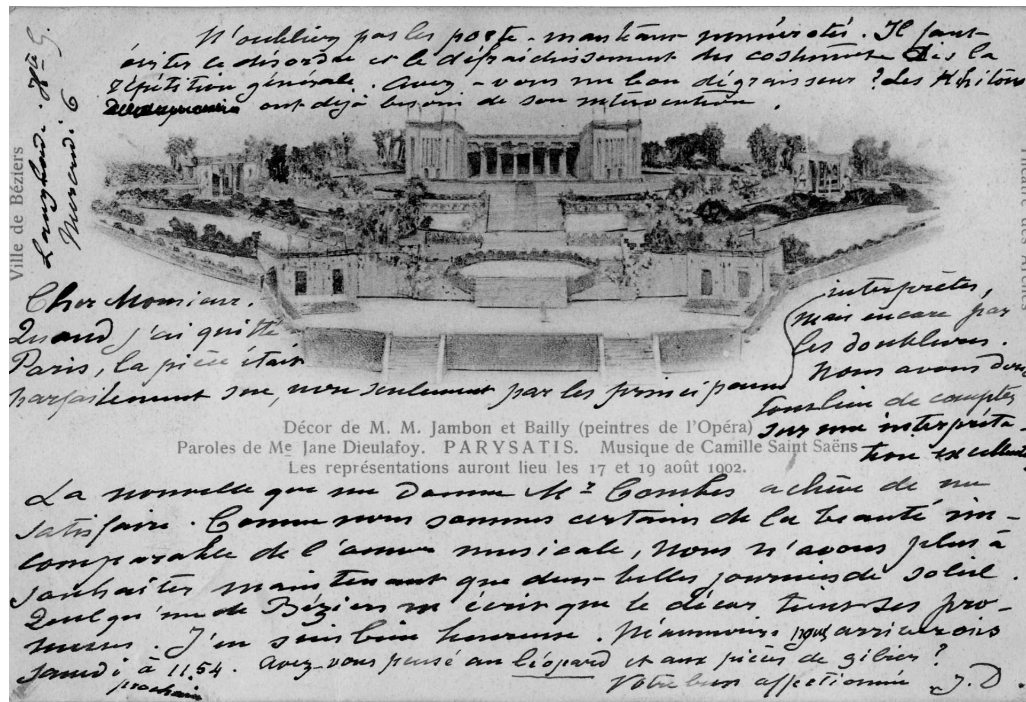 N'oubliez pas les porte-manteaux numérotés. Il faut
éviter le désordre et le défraîchissement des costumes dès la
répétition générale. Avez-vous un bon dégraisseur ? Les
ont déjà besoin de son intervention.
Ville de Béziers
Mercredi 6
Théâtre des Arènes
Cher Monsieur.
Quand j'ai quitté
Paris, la pièce était
parfaitement sue, non seulement par les principaux
interprètes,
mais encore par
les doublures.
Nous avons donc
tout lieu de compter
sur une interpréta-
tion excellente
Décor de M. M. Jambon et Bailly (peintres de l'Opéra)
Paroles de Me Jane Dieulafoy. PARYSATIS. Musique de Camille Saint Saëns
Les représentations auront lieu les 17 et 19 août 1902.
La nouvelle que me donne Mr Combes achève de me
satisfaire. Comme nous sommes certains de la beauté in-
comparable de l'œuvre musicale, nous n'avons plus à
souhaiter maintenant que deux belles journées de soleil.
Quelqu'un de Béziers m'écrit que le décor tient ses pro-
messes. J'en suis bien heureuse. Néanmoins nous arriverons
samedi prochain à 11.54. Avez-vous pensé au léopard et aux pièces de gibier ?
Votre bien affectionnée J. D.